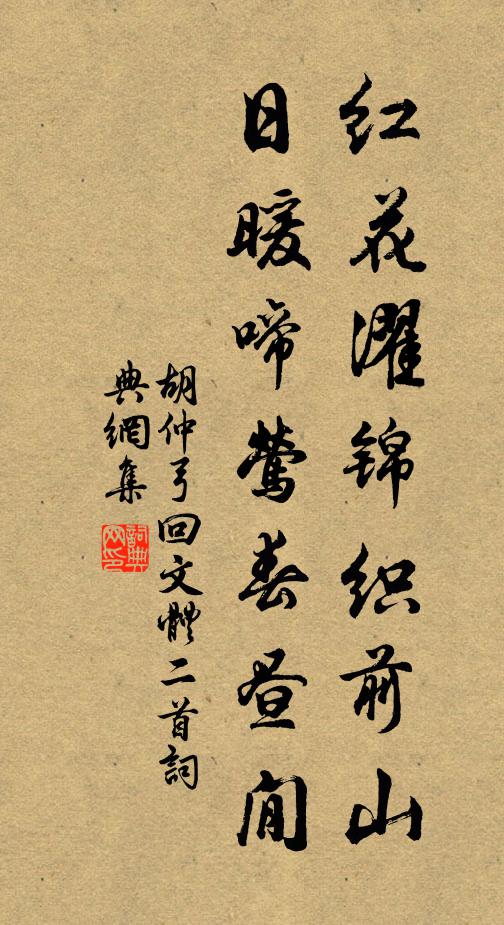 红花濯锦织前山
日暖啼莺春昼闲
胡仲弓回文體二首詞
典網集
詞典網印